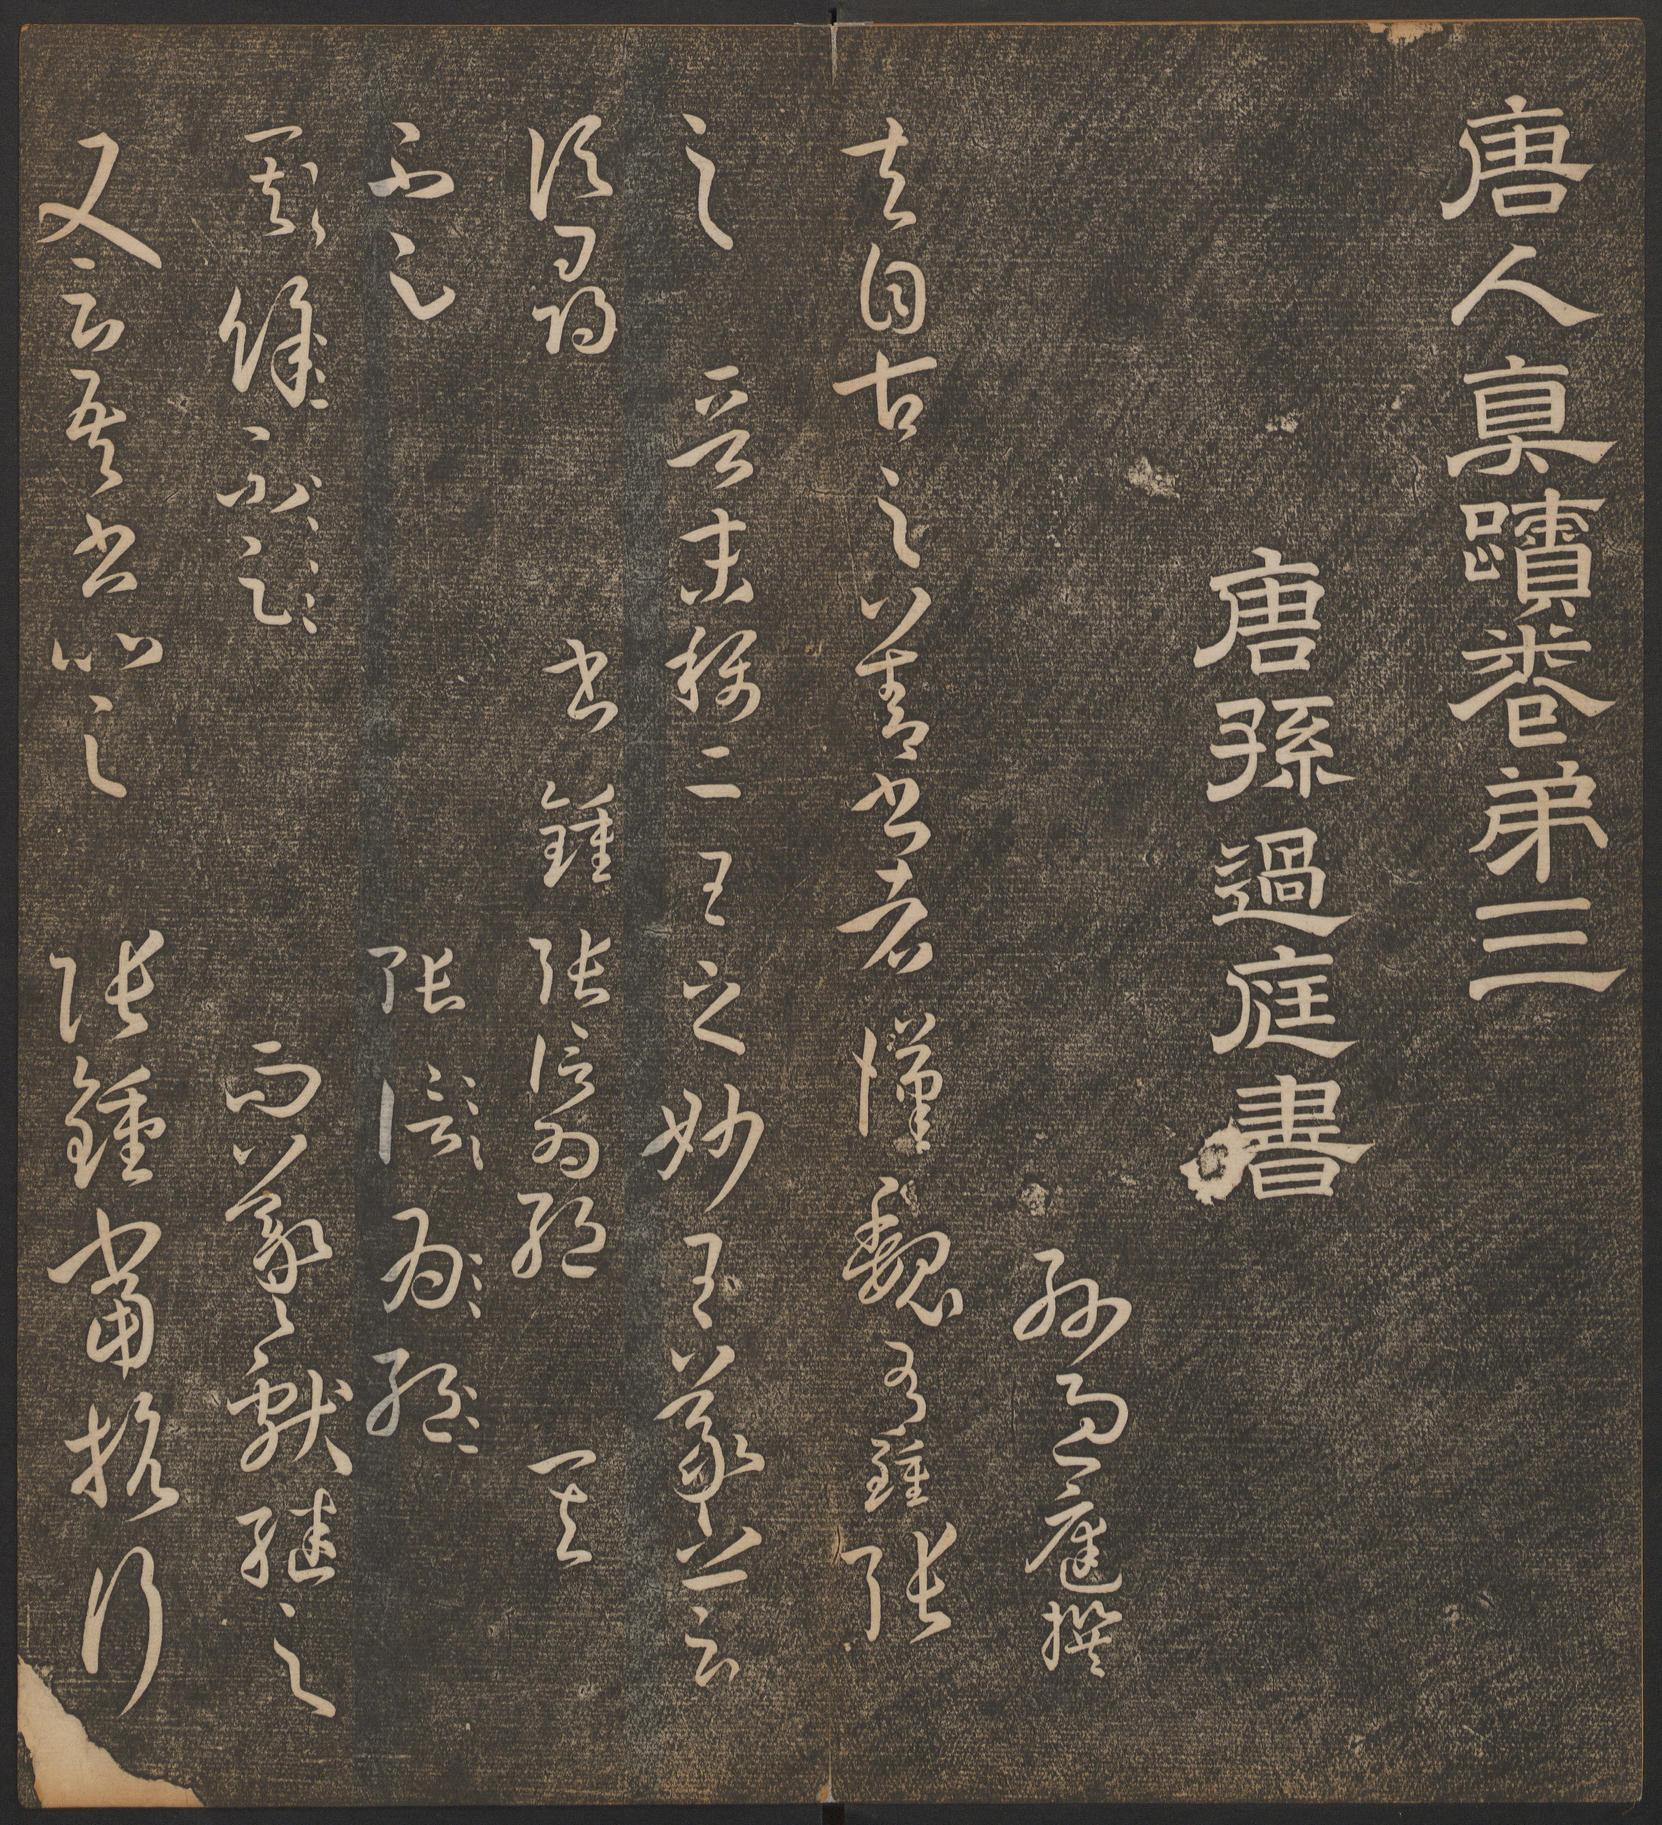 唐人真蹟卷弟三
唐孫過庭書
孫過庭撰
夫自古之善書者漢魏有鍾張
之 晉末稱二王之妙王羲之云
頃尋 書鍾張信為絕 其
不足 張信為絕
其餘不足 而羲獻繼之
又云吾書比之 張鍾當抗行